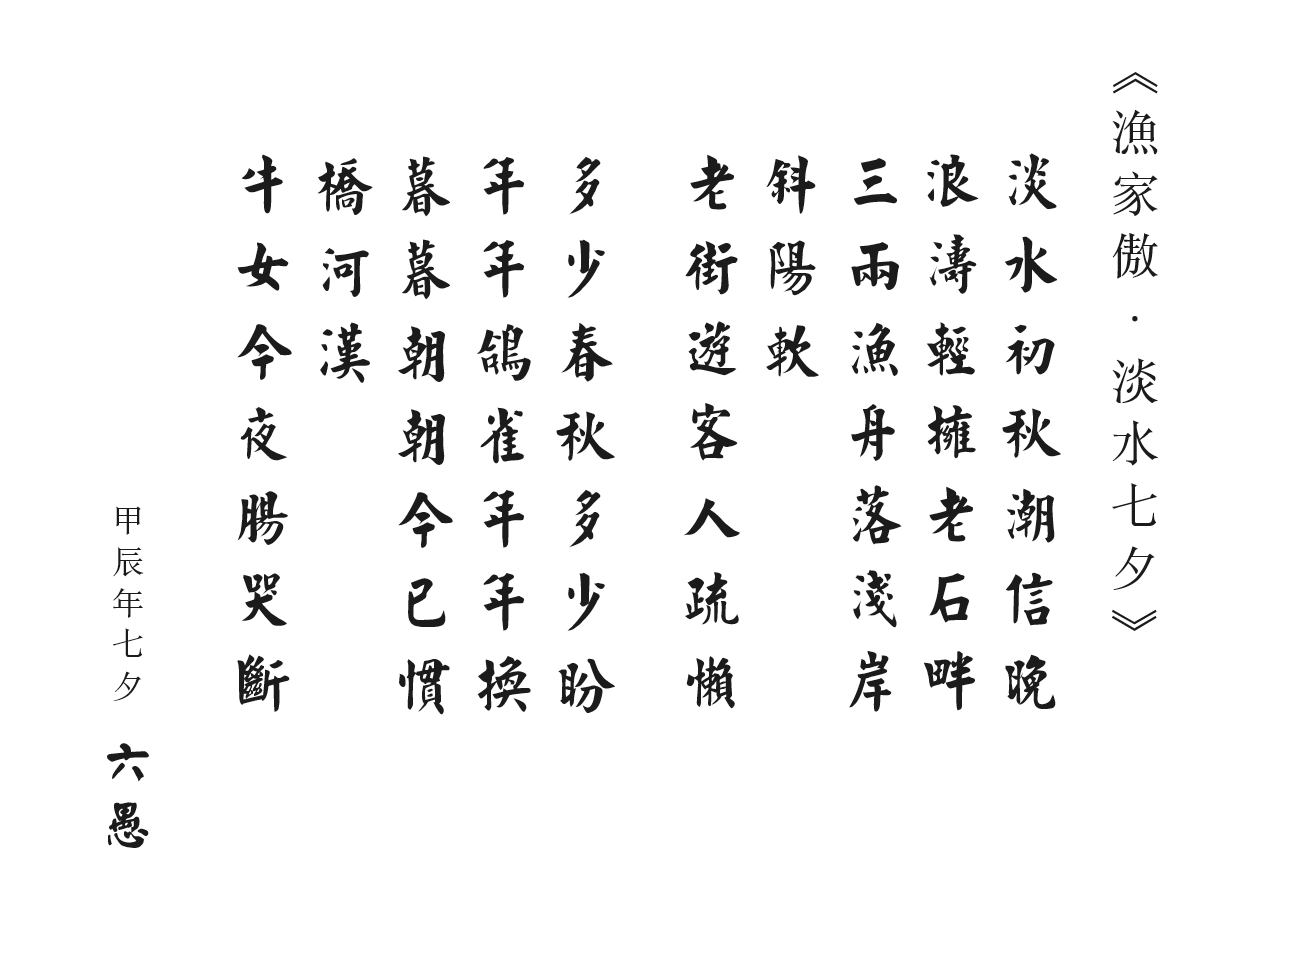 《漁家傲·淡水七夕》
淡水初秋潮信晚
浪濤輕擁老石畔
三兩漁丹落淺岸
斜陽軟
老街遊客人疏懶
多少春秋多少盼
年年鴿雀年年換
暮暮朝朝今已慣
橋河漢
牛女今夜腸哭斷
甲辰年七夕
六愚